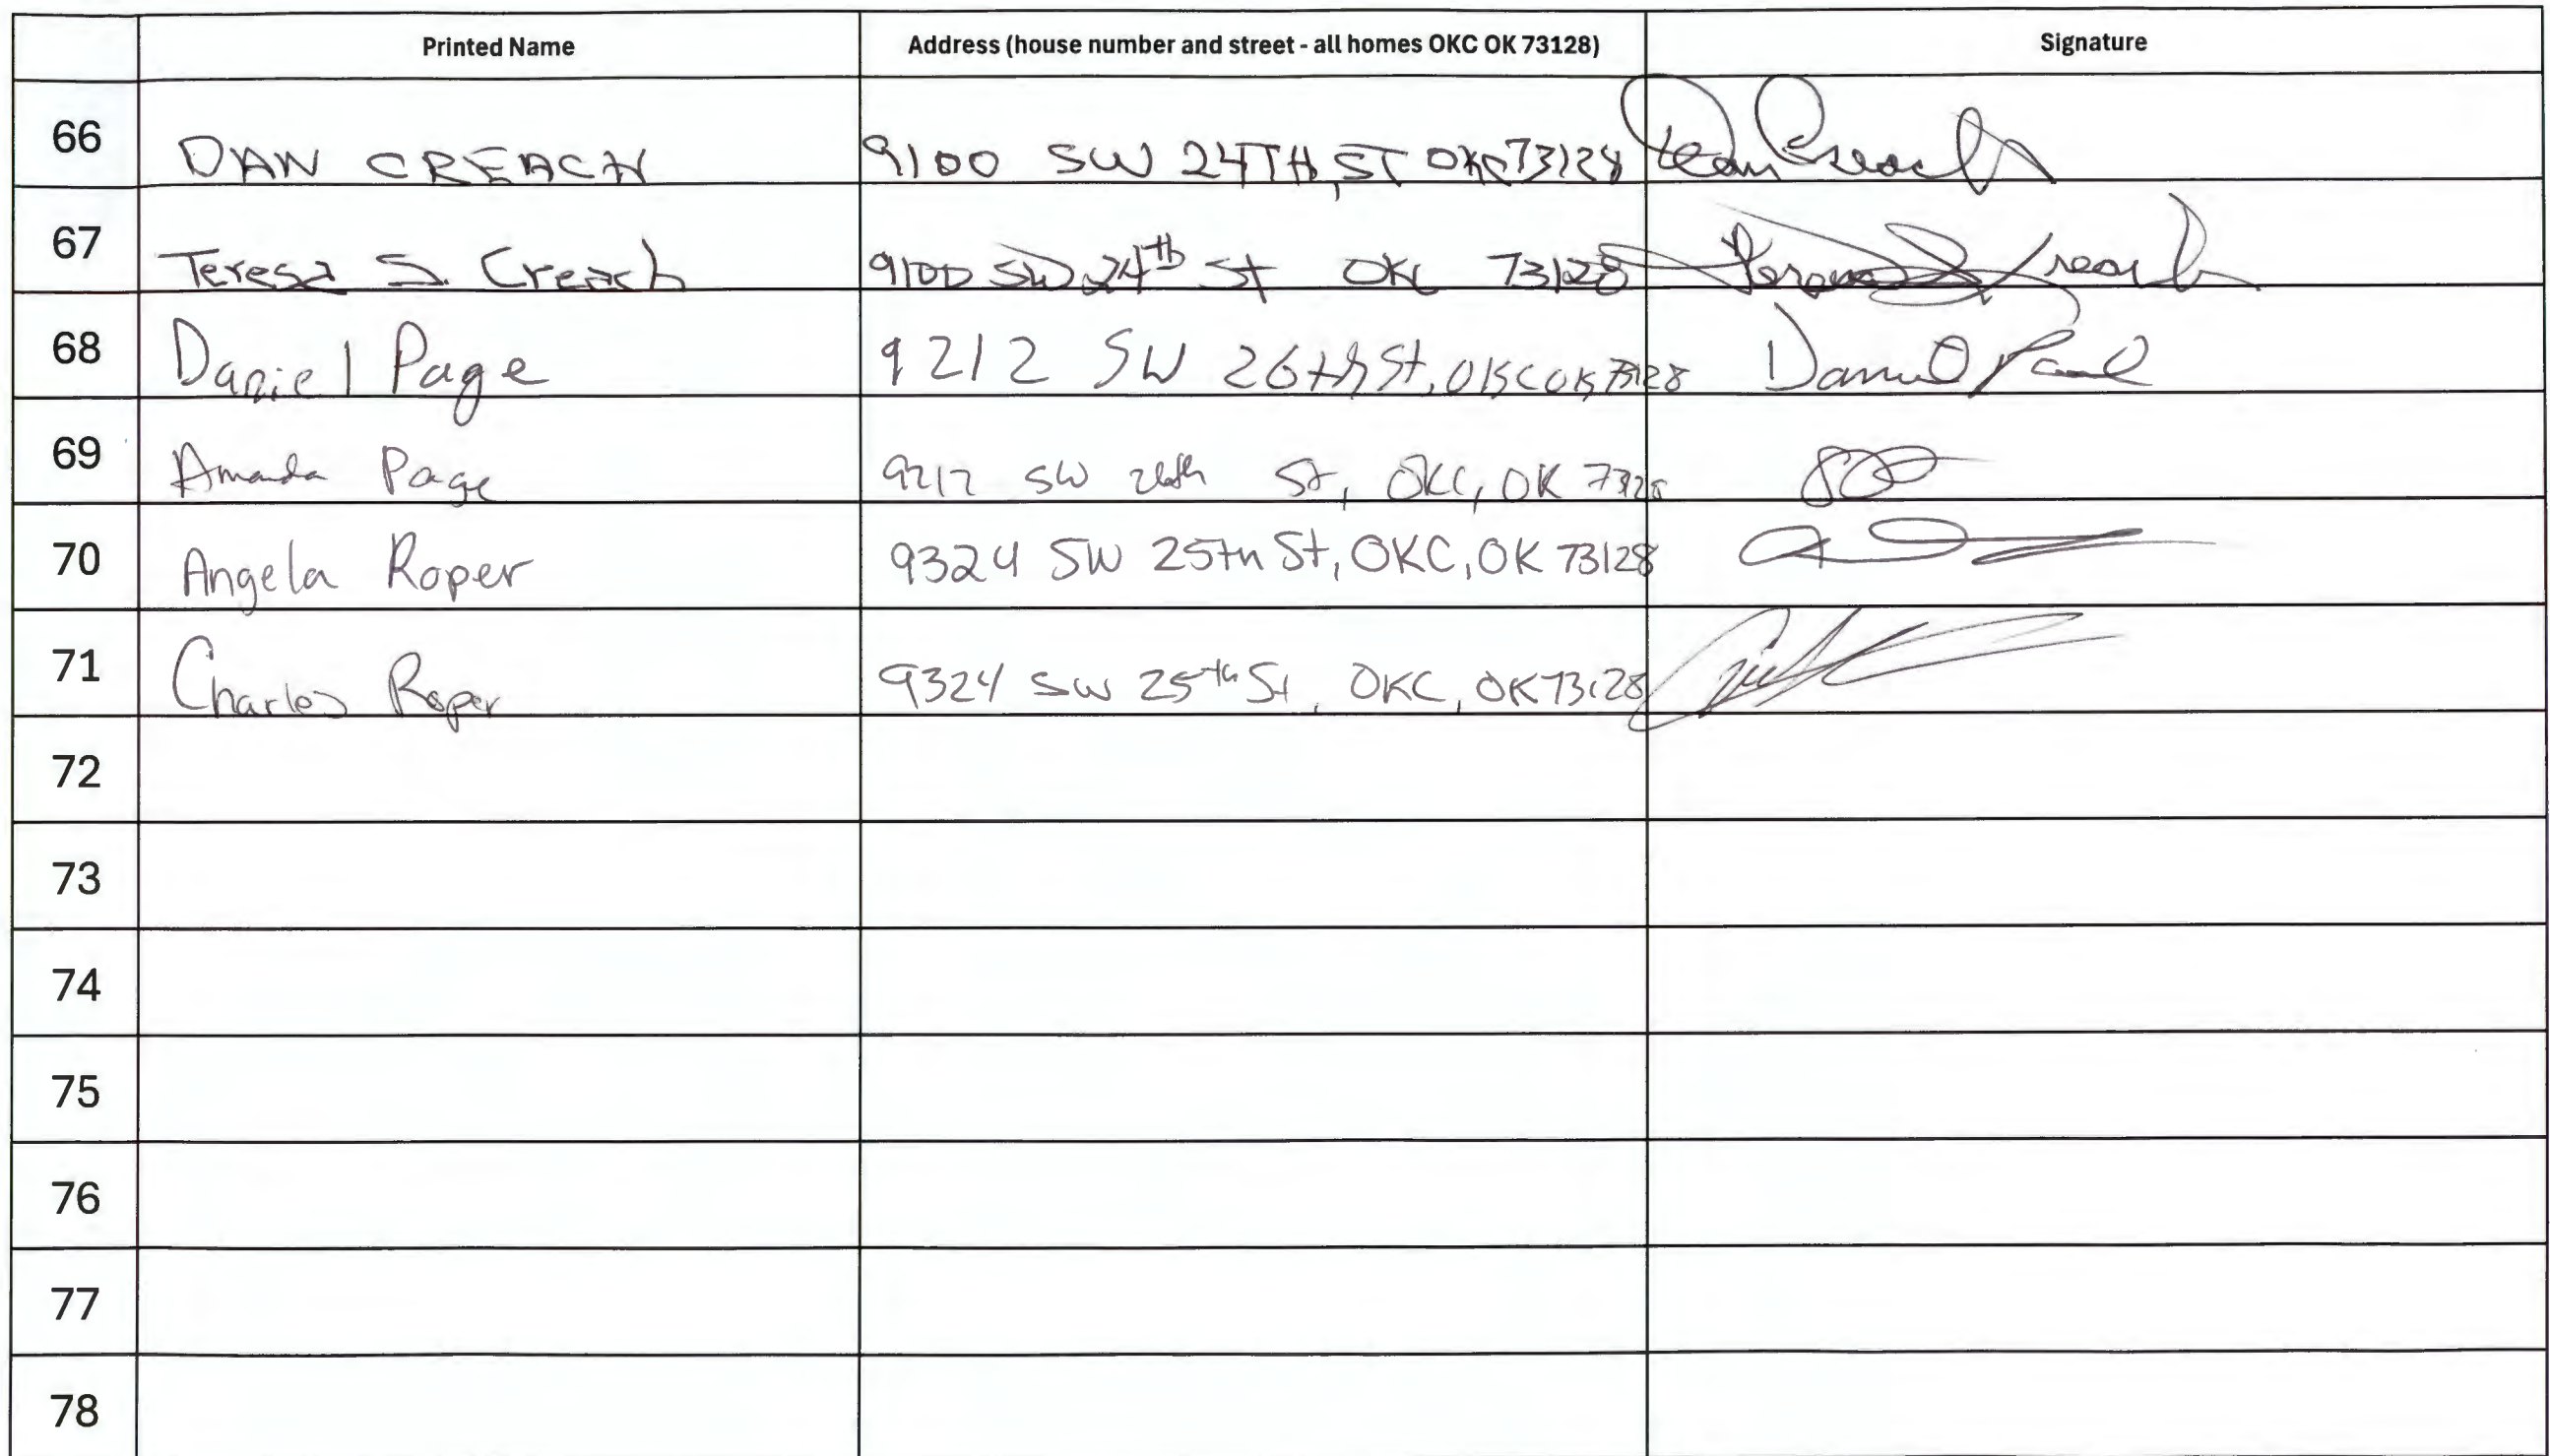 Printed Name Address (house number and street - all homes OKC OK 73128) Signature
66 DAN CREACH 9100 SW 24TH, ST OKC 73128 Dan Creach
67 Teresa S. Creach 9100 SW 24th St OKC 73128 Teresa S Creach
68 Daniel Page 9212 SW 26th St, OKC OK 73128 Daniel
69 Amanda Page 9212 SW 26th St, OKC, OK 73128
70 Angela Roper 9324 SW 25th St, OKC, OK 73128
71 Charles Roper 9324 SW 25th St, OKC, OK 73128
72
73
74
75
76
77
78